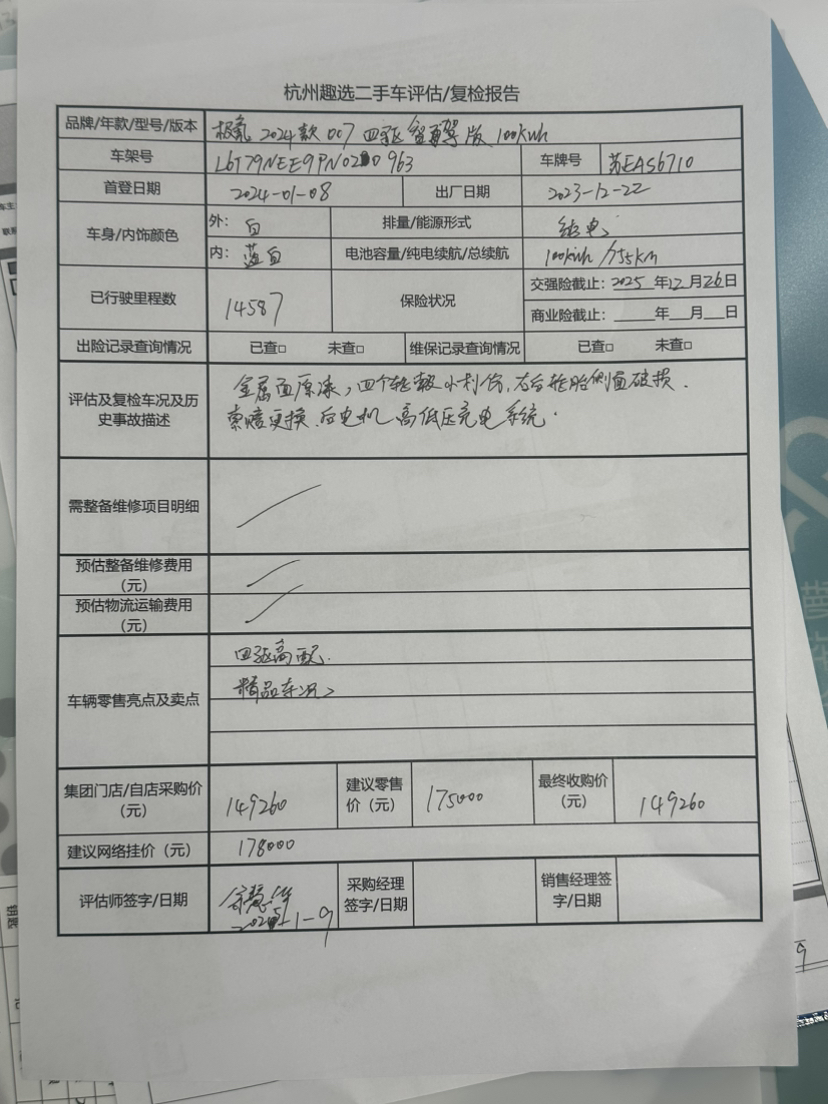 杭州趣选二手车评估/复检报告
品牌/年款/型号/版本 极氪 2024款 007 四驱智驾版 100kWh
车架号 车牌号 苏EAS6710
首登日期 2024-01-08 出厂日期 2023-12-22
车身/内饰颜色 外: 白 排量/能源形式 纯电
内: 蓝白 电池容量/纯电续航/总续航 100kWh
已行驶里程数 14587 保险状况 交强险截止: 2025年12月26日
商业险截止: 年 月 日
出险记录查询情况 已查□ 未查□ 维保记录查询情况 已查□ 未查□
评估及复检车况及历史事故描述 金属面原漆, 四个轮毂小刮伤, 右后轮胎侧面破损.
索赔更换 后电机 高低压充电系统.
需整备维修项目明细
预估整备维修费用(元)
预估物流运输费用(元)
车辆零售亮点及卖点 四驱高配.
精品车况
集团门店/自店采购价(元) 149260 建议零售价(元) 175000 最终收购价(元) 149260
建议网络挂价(元) 178000
评估师签字/日期 采购经理签字/日期 销售经理签字/日期